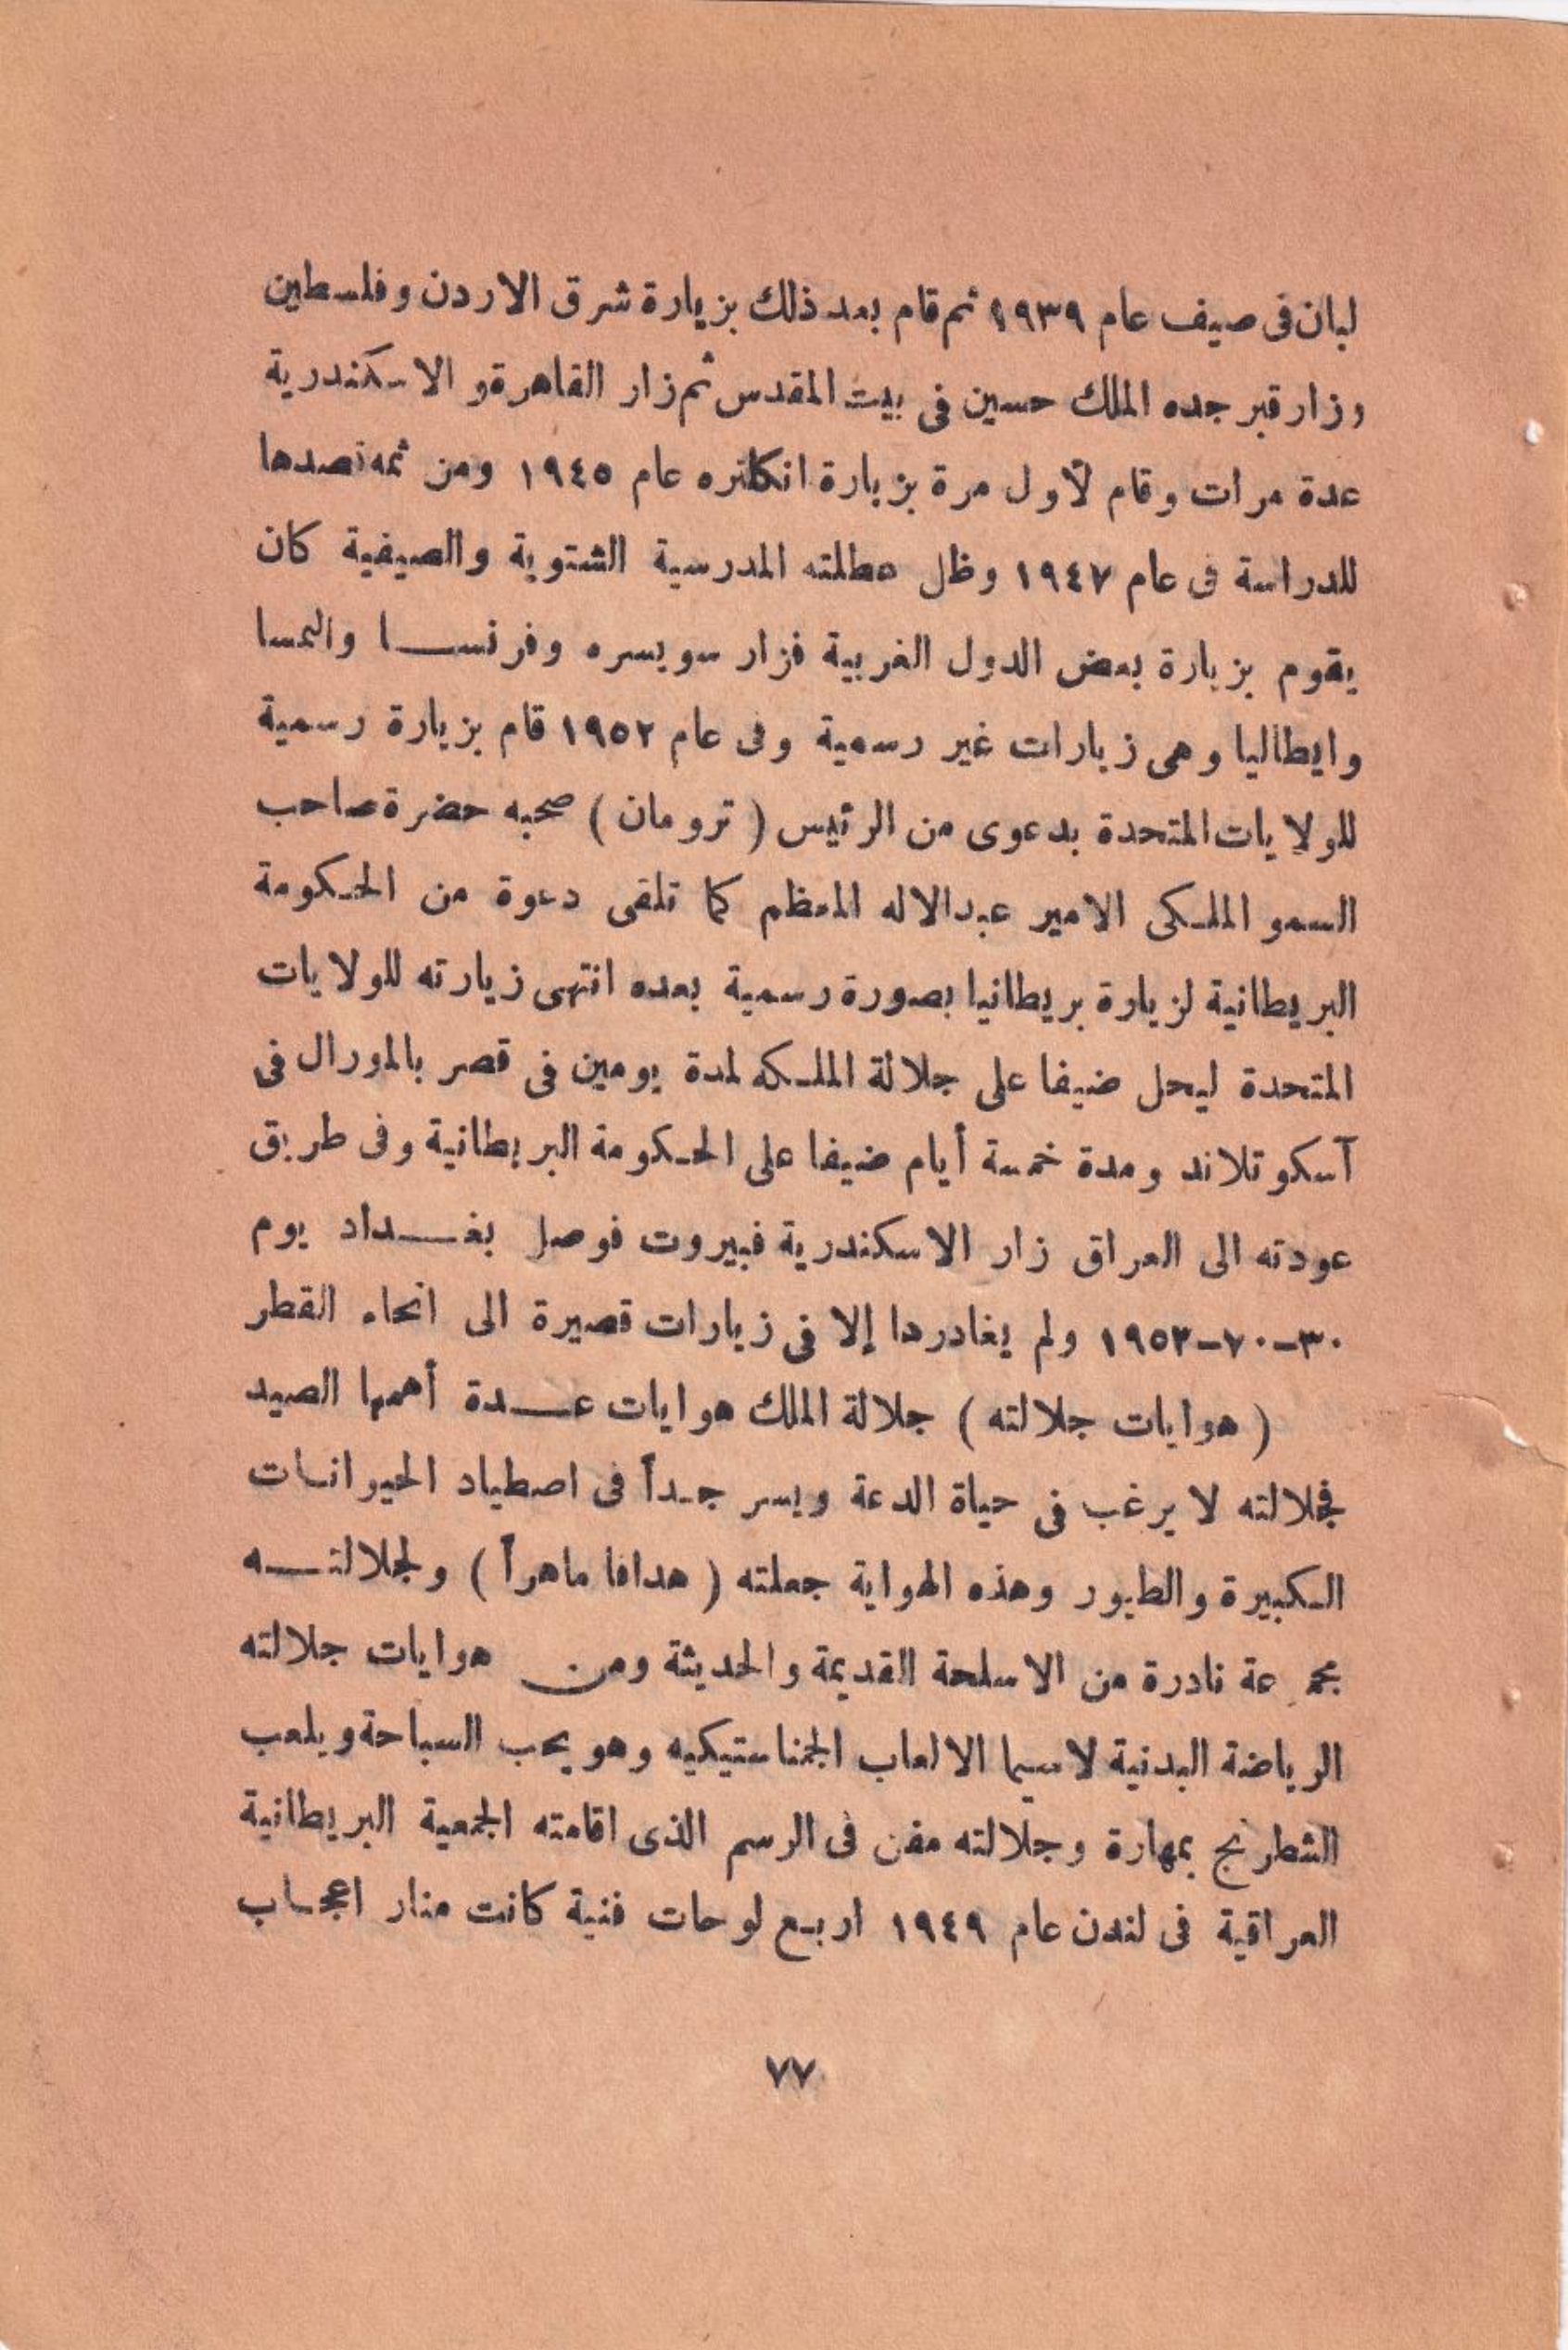 لبنان فى صيف عام ١٩٣٩ ثم قام بعد ذلك بزيارة شرق الاردن وفلسطين
وزار قبر جده الملك حسين فى بيت المقدس ثم زار القاهرة و الاسكندرية
عدة مرات وقام لأول مرة بزيارة انكلتره عام ١٩٤٥ ومن ثمه قصدها
للدراسة فى عام ١٩٤٧ وظل عطلته المدرسية الشتوية والصيفية كان
يقوم بزيارة بعض الدول الغربية فزار سويسره وفرنســا والنمسا
وايطاليا وهى زيارات غير رسمية وفى عام ١٩٥٢ قام بزيارة رسمية
للولايات المتحدة بدعوى من الرئيس ( ترومان ) صحبه حضرة صاحب
السمو الملكى الامير عبدالاله المعظم كما تلقى دعوة من الحكومة
البريطانية لزيارة بريطانيا بصورة رسمية بعده انتهى زيارته للولايات
المتحدة ليحل ضيفا على جلالة الملكه لمدة يومين فى قصر بالمورال فى
آسكوتلاند ومدة خمسة أيام ضيفا على الحكومة البريطانية وفى طريق
عودته الى العراق زار الاسكندرية فبيروت فوصل بغــداد يوم
٣٠-٧٠-١٩٥٣ ولم يغادردا إلا فى زيارات قصيرة الى انحاء القطر
( هوايات جلالته ) جلالة الملك هوايات عــدة أهمها الصيد
فجلالته لا يرغب فى حياة الدعة ويسر جـداً فى اصطياد الحيوانات
الكبيرة والطيور وهذه الهواية جعلته ( هدافا ماهراً ) ولجلالتــه
مجموعة نادرة من الاسلحة القديمة والحديثة ومن هوايات جلالته
الرياضة البدنية لاسيما الالعاب الجمناستيكيه وهو يحب السباحة ويلعب
الشطرنج بمهارة وجلالته مفن فى الرسم الذى اقامته الجمعية البريطانية
العراقية فى لندن عام ١٩٤٩ اربع لوحات فنية كانت منار اعجاب
٧٧